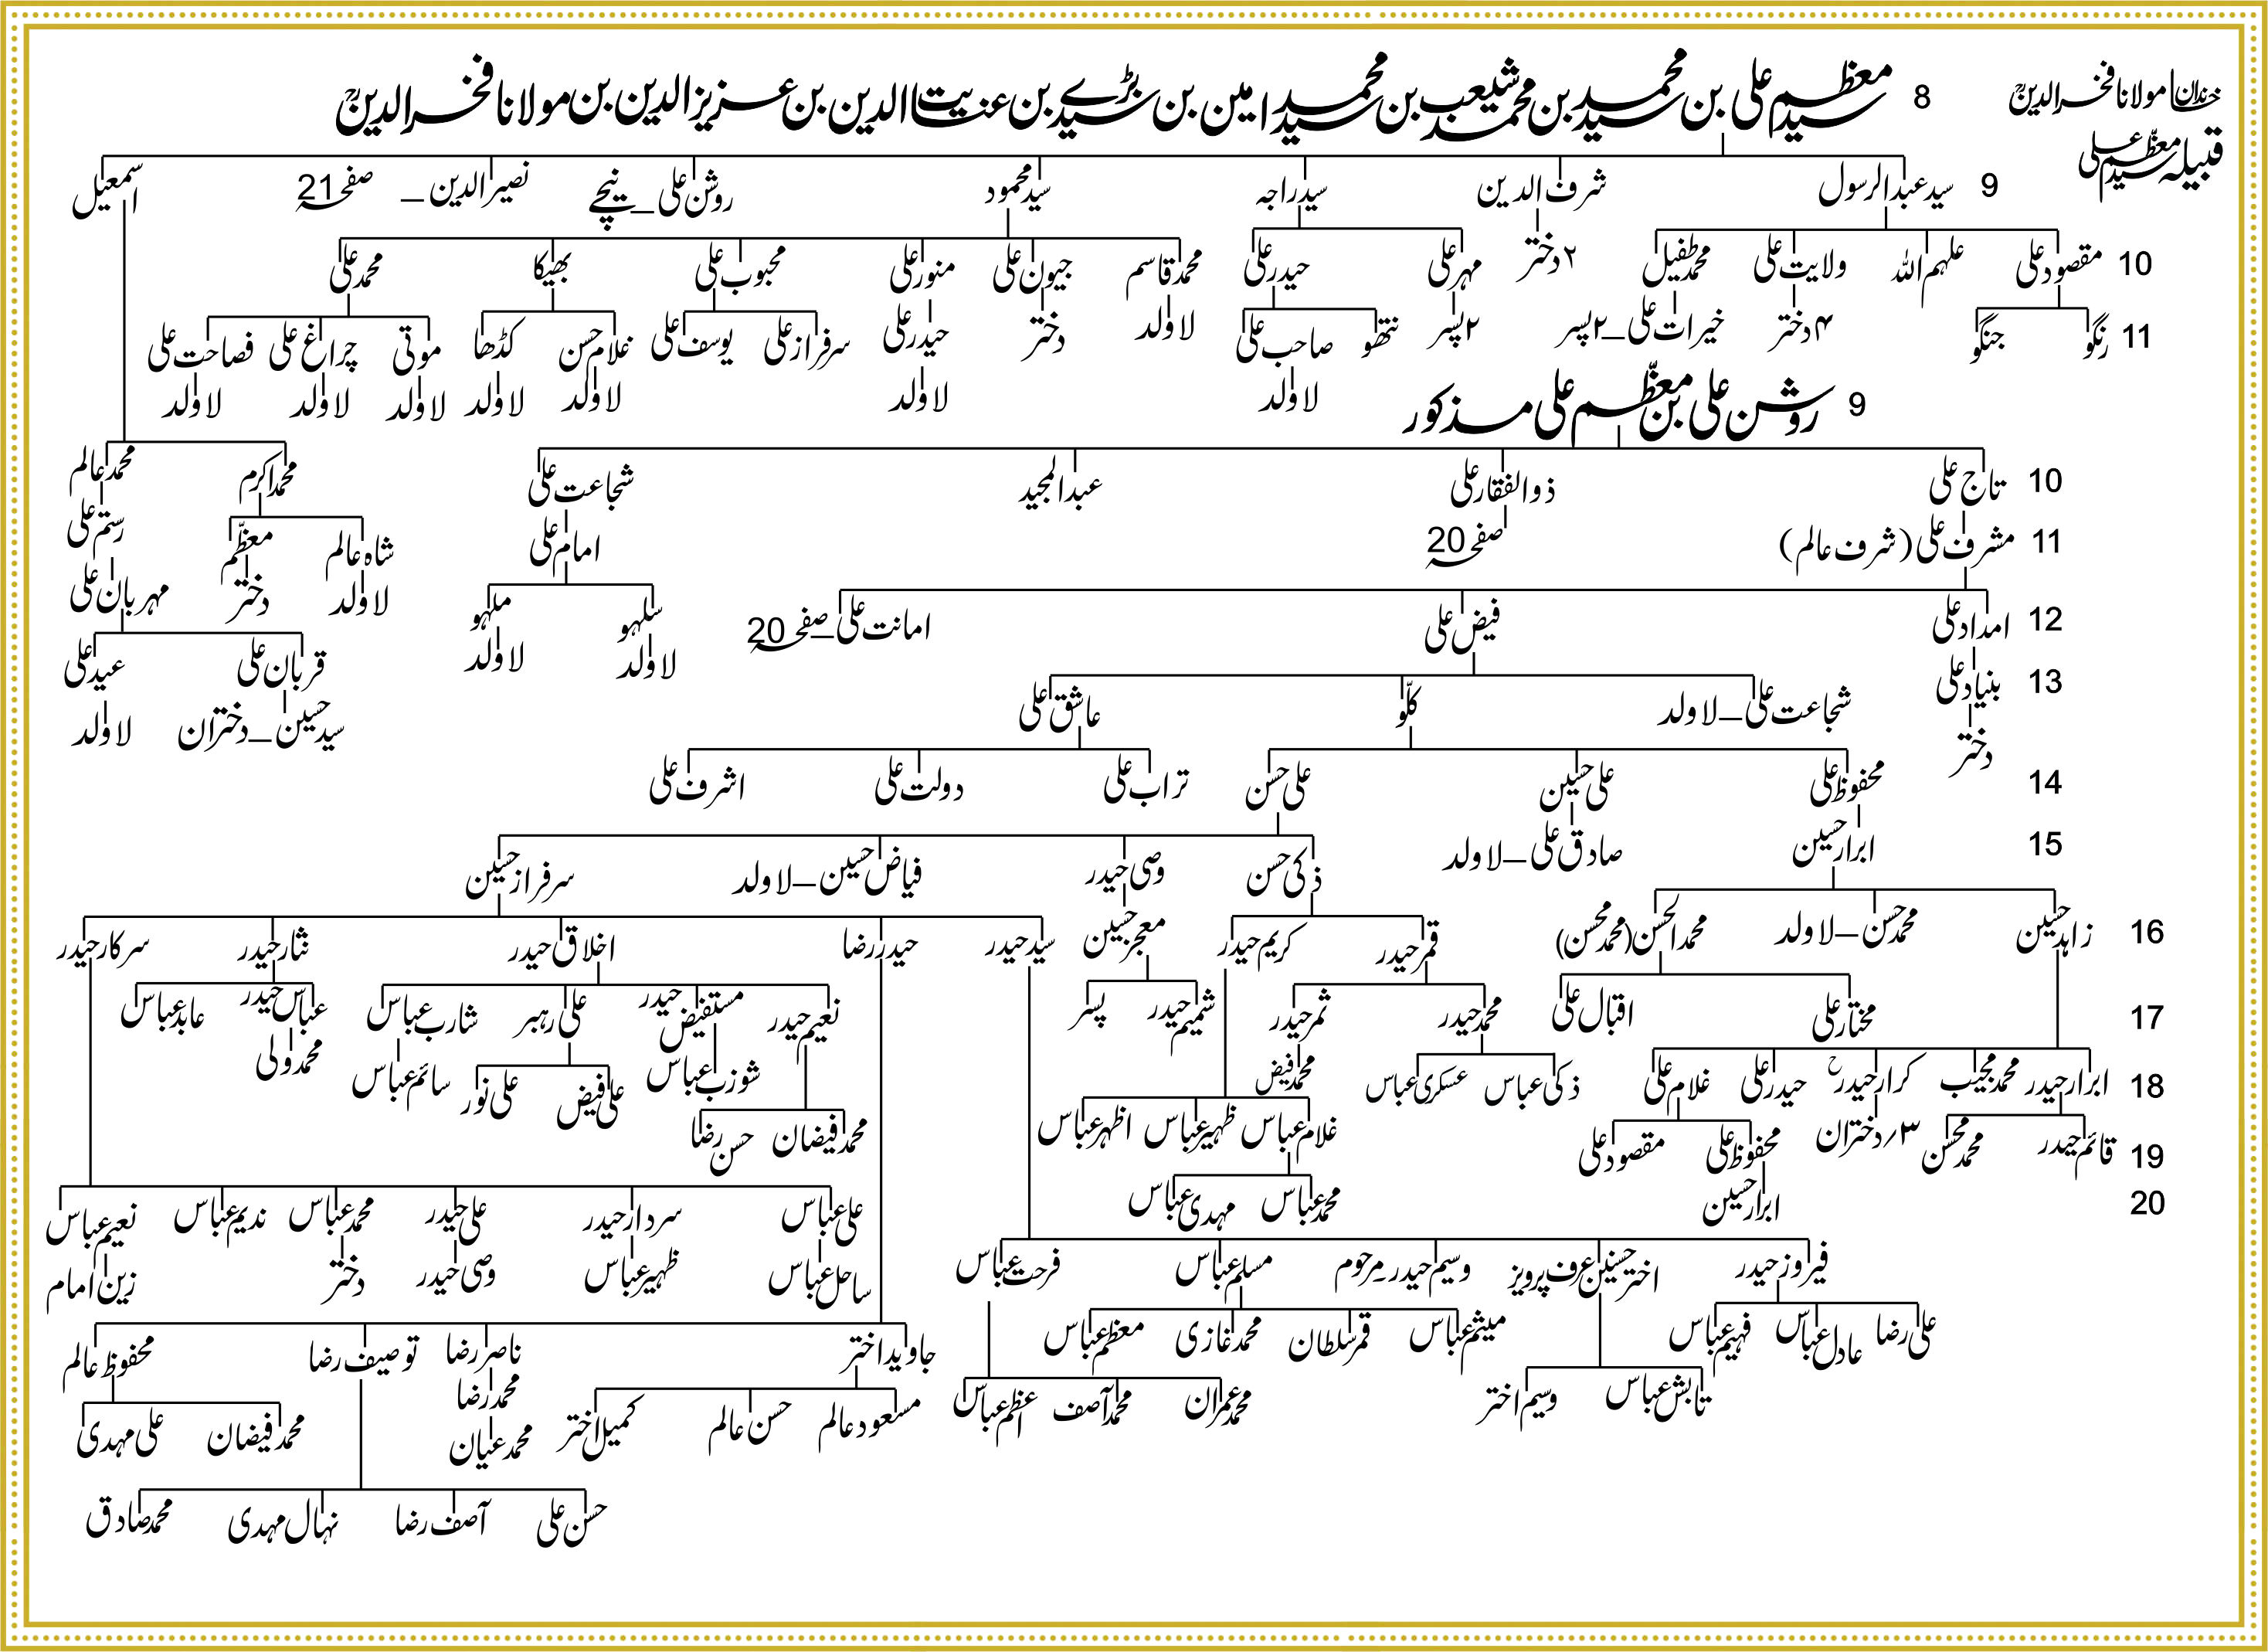 خاندان مولانا فخر الدینؒ
قبیلہ سید معظّم علی
8 سید معظم علی بن سید محمد بن محمد شعیب بن سید محمد امین بن سید بڑے بن عنایت الدین بن عزیز الدین بن مولانا فخر الدینؒ
9 سید عبدالرسول شرف الدین سید راجہ سید محمود روشن علی _ نیچے نصیر الدین _ صفحہ 21 اسمعیل
10 مقصود علی علہم اللہ ولایت علی محمد طفیل ۲ دختر مہر علی حیدر علی محمد قاسم جیون علی منور علی محبوب علی بھیکا محمد علی
11 رنگو جنگو ۴ دختر خیرات علی _ ۲ پسر ۲ پسر نتھو صاحب علی لاولد دختر حیدر علی سرفراز علی یوسف علی غلام حسن کڈھا موتی چراغ علی فصاحت علی
لاولد لاولد لاولد لاولد لاولد لاولد لاولد
9 روشن علی بن معظّم علی مذکور
10 تاج علی ذوالفقار علی عبدالمجید شجاعت علی محمد اکرم محمد عالم
11 مشرف علی (شرف عالم) صفحہ 20 امام علی شاہ عالم معظّم رستم علی
12 امداد علی فیض علی امانت علی _ صفحہ 20 سلہو ملہو لاولد دختر مہربان علی
لاولد لاولد
13 بنیاد علی شجاعت علی _ لاولد کلّو عاشق علی قربان علی عید علی
دختر سید حسین _ دختران لاولد
14 محفوظ علی علی حسین علی حسن تراب علی دولت علی اشرف علی
15 ابرار حسین صادق علی _ لاولد ذکی حسن وصی حیدر فیاض حسین _ لاولد سرفراز حسین
16 زاہد حسین محمد حسن _ لاولد محمد الحسن (محمد محسن) قمر حیدر کریم حیدر معجز حسین سید حیدر حیدر رضا اخلاق حیدر نثار حیدر سرکار حیدر
17 مختار علی اقبال علی محمد حیدر ثمر حیدر شمیم حیدر پسر نعیم حیدر مستفیض حیدر علی رہبر شارب عباس عباس حیدر عابد عباس
18 ابرار حیدر محمد مجیب کرار حیدرؒ حیدر علی غلام علی ذکی عباس عسکری عباس محمد فیض شوزب عباس علی فیض علی نور سائم عباس محمد ولی
غلام عباس ظہیر عباس اظہر عباس محمد فیضان حسن رضا
19 قائم حیدر محمد محسن ۳/دختران محفوظ علی مقصود علی
20 ابرار حسین محمد عباس مہدی عباس علی عباس سردار حیدر علی حیدر محمد عباس ندیم عباس نعیم عباس
فیروز حیدر اختر حسنین عرف پرویز وسیم حیدر۔مرحوم مسلم عباس فرحت عباس ساحل عباس ظہیر عباس وصی حیدر دختر زین امام
علی رضا عادل عباس فہیم عباس میثم عباس قمر سلطان محمد غازی معظم عباس جاوید اختر ناصر رضا توصیف رضا محفوظ عالم
تابش عباس وسیم اختر محمد عمران محمد آصف اعظم عباس مسعود عالم حسن عالم کمیل اختر محمد رضا محمد فیضان علی مہدی
محمد عیان
حسن علی آصف رضا نہال مہدی محمد صادق